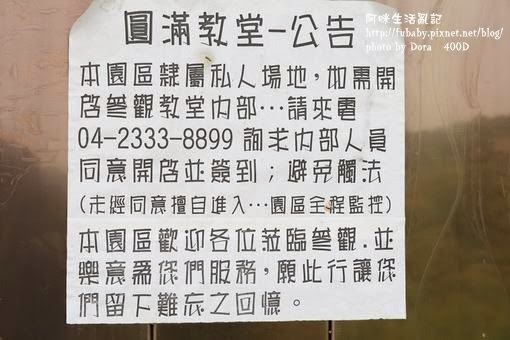 阿咪生活亂記
http://fubaby.pixnet.net/blog/
photo by Dora 400D
圓滿教堂-公告
本園區隸屬私人場地,如需開
啟參觀教堂內部…請來電
04-2333-8899 詢求內部人員
同意開啟並簽到；避免觸法
(未經同意擅自進入…園區全程監控)
本園區歡迎各位蒞臨參觀.並
樂意為您們服務,願此行讓您
們留下難忘之回憶。